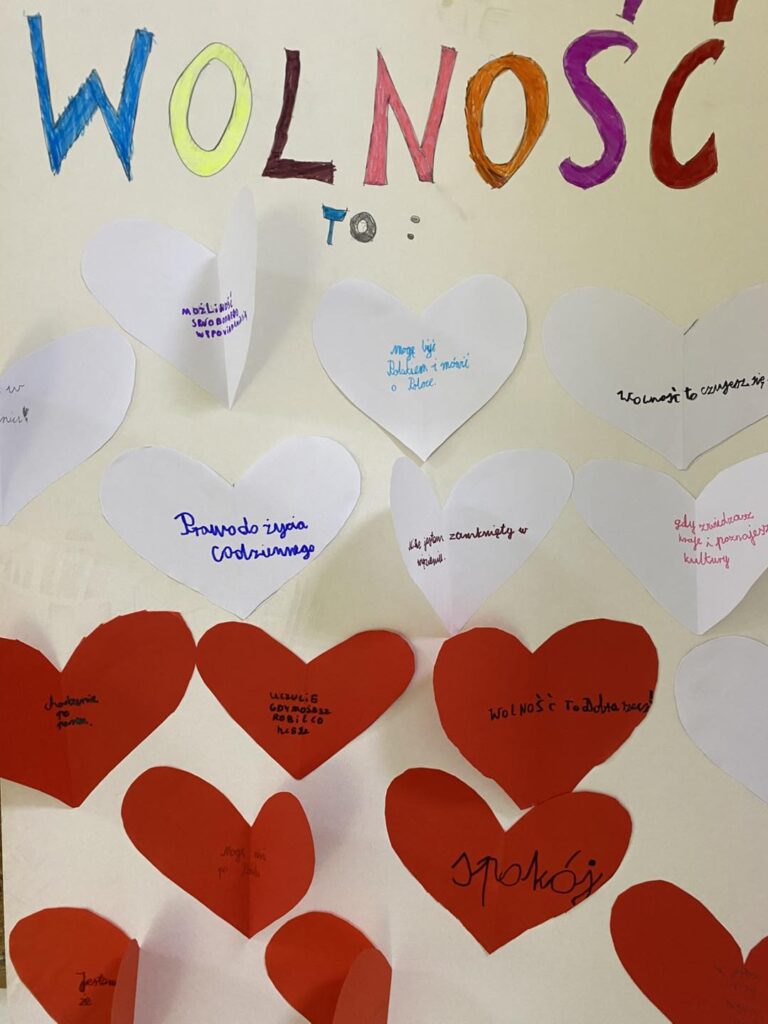 WOLNOŚĆ
TO :
MOŻLIWOŚĆ
SWOBODNEJ
WYPOWIEDZI
Mogę być
Polakiem i mówić
o Polsce.
w
Wolność to czujesz się
Prawo do życia
codziennego
jestem zamknięty w
gdy zwiedzasz
kraje i poznajesz
kultury
chodzenie
po
UCZUCIE
GDY MOŻESZ
ROBIĆ CO
WOLNOŚĆ To Dobra rzecz!
Mogę
po
spokój
Jestem
że